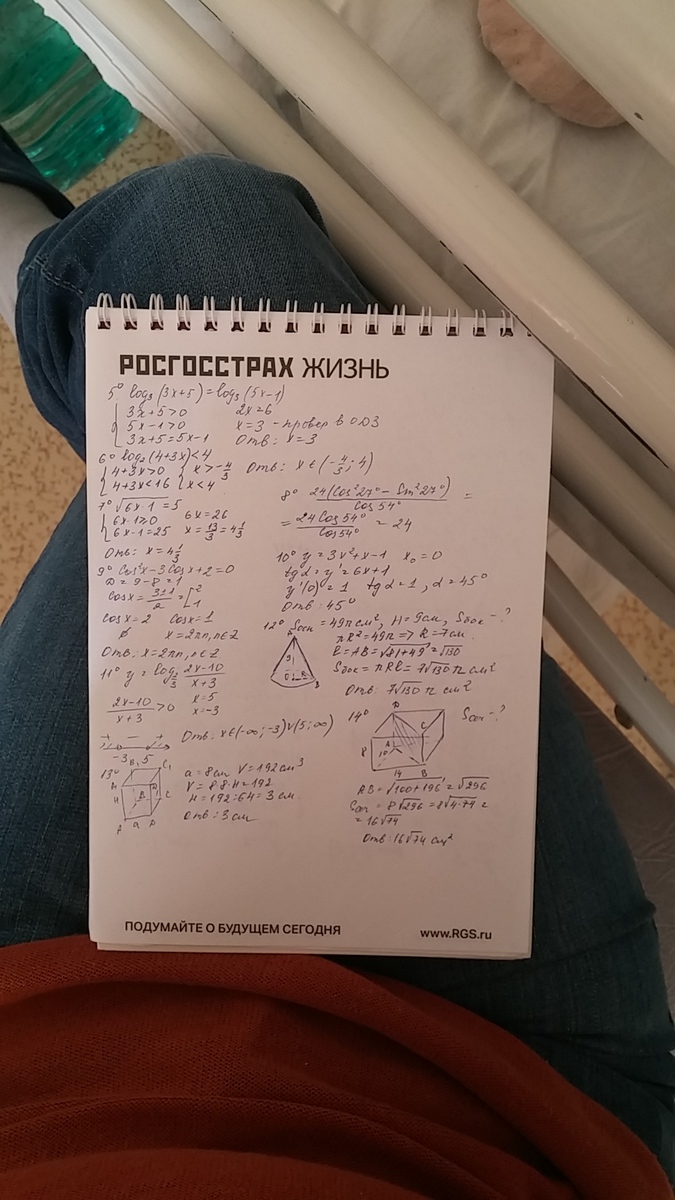 РОСГОССТРАХ ЖИЗНЬ
5° log₃(3x+5)=log₃(5x-1)
3x+5>0 2x=6
5x-1>0 x=3 - провер в ОДЗ
3x+5=5x-1 Отв: x=3
6° log₂(4+3x)<4
4+3x>0 x>-4/3 Отв: x∈(-4/3; 4)
4+3x<16 x<4
7° √6x-1=5
6x-1≥0 6x=26
6x-1=25 x=13/3=4 1/3
Отв: x=4 1/3
8° 24(Cos²27°-Sin²27°)/Cos54° =
= 24Cos54°/Cos54° = 24
9° Cos²x-3Cosx+2=0
D=9-8=1
Cosx=3±1/2=[2 1
Cosx=2 Cosx=1
∅ x=2πn, n∈Z
Отв: x=2πn, n∈Z
10° y=3x²+x-1 x₀=0
tgα=y'=6x+1
y'(0)=1 tgα=1, α=45°
Отв: 45°
11° y=log₂/₃ 2x-10/x+3
2x-10/x+3>0 x=5
x=-3
+ - +
-3 5
Отв: x∈(-∞;-3)∪(5;∞)
12° Sосн=49π см², H=9см, Sбок-?
πR²=49π => R=7см
ℓ=AB=√81+49=√130
Sбок=πRℓ=7√130 π см²
Отв: 7√130 π см²
A
9
O R B
13° a=8см V=192см³
V=8·8·H=192
H=192:64=3 см
Отв: 3 см
14° Sсеч-?
D
C
8
A
10
14 B
AB=√100+196=√296
Sсеч=8√296=8√4·74=
=16√74
Отв: 16√74 см²
ПОДУМАЙТЕ О БУДУЩЕМ СЕГОДНЯ
www.RGS.ru